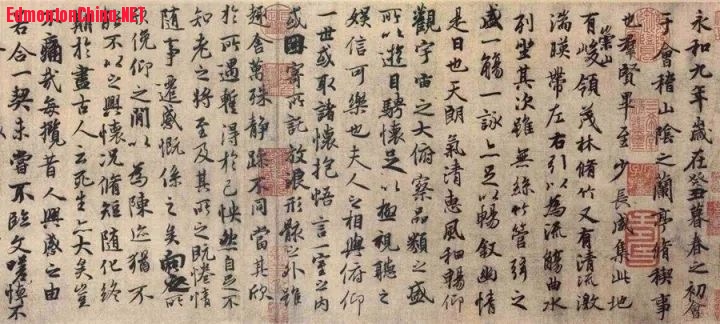 EdmontonChina.NET
EdmontonChina.Com
永和九年歲在癸丑暮春之初會
于會稽山陰之蘭亭脩稧事
也羣賢畢至少長咸集此地
有崇山峻領茂林脩竹又有清流激
湍暎帶左右引以為流觴曲水
列坐其次雖無絲竹管弦之
盛一觴一詠亦足以暢敘幽情
是日也天朗氣清惠風和暢仰
觀宇宙之大俯察品類之盛
所以遊目騁懷足以極視聽之
娛信可樂也夫人之相與俯仰
一世或取諸懷抱悟言一室之內
或因寄所託放浪形骸之外雖
趣舍萬殊靜躁不同當其欣
於所遇暫得於己怏然自足不
知老之將至及其所之既惓情
隨事遷感慨係之矣向之所
欣俛仰之間以為陳迹猶不
能不以之興懷況脩短隨化終
期於盡古人云死生亦大矣豈
不痛哉每攬昔人興感之由
若合一契未嘗不臨文嗟悼不